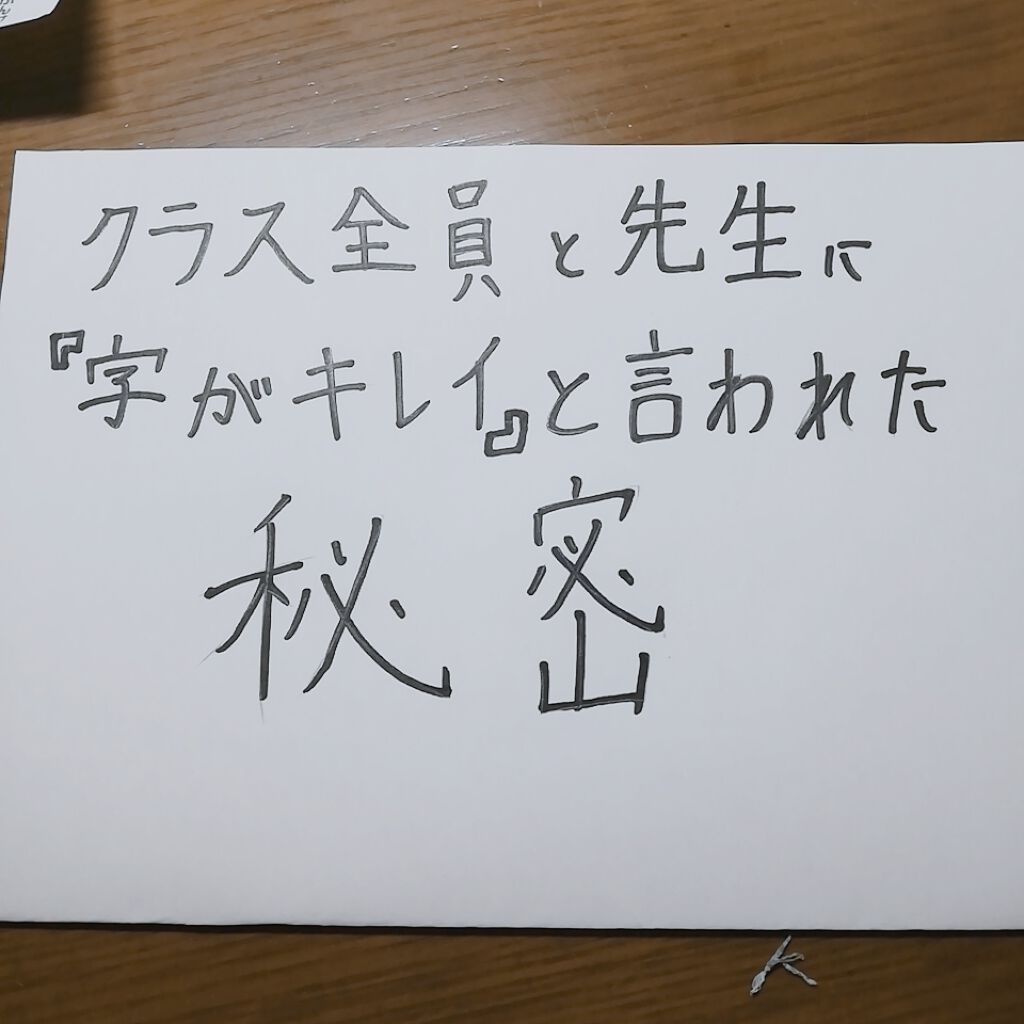 クラス全員と先生に
『字がキレイ』と言われた
秘密